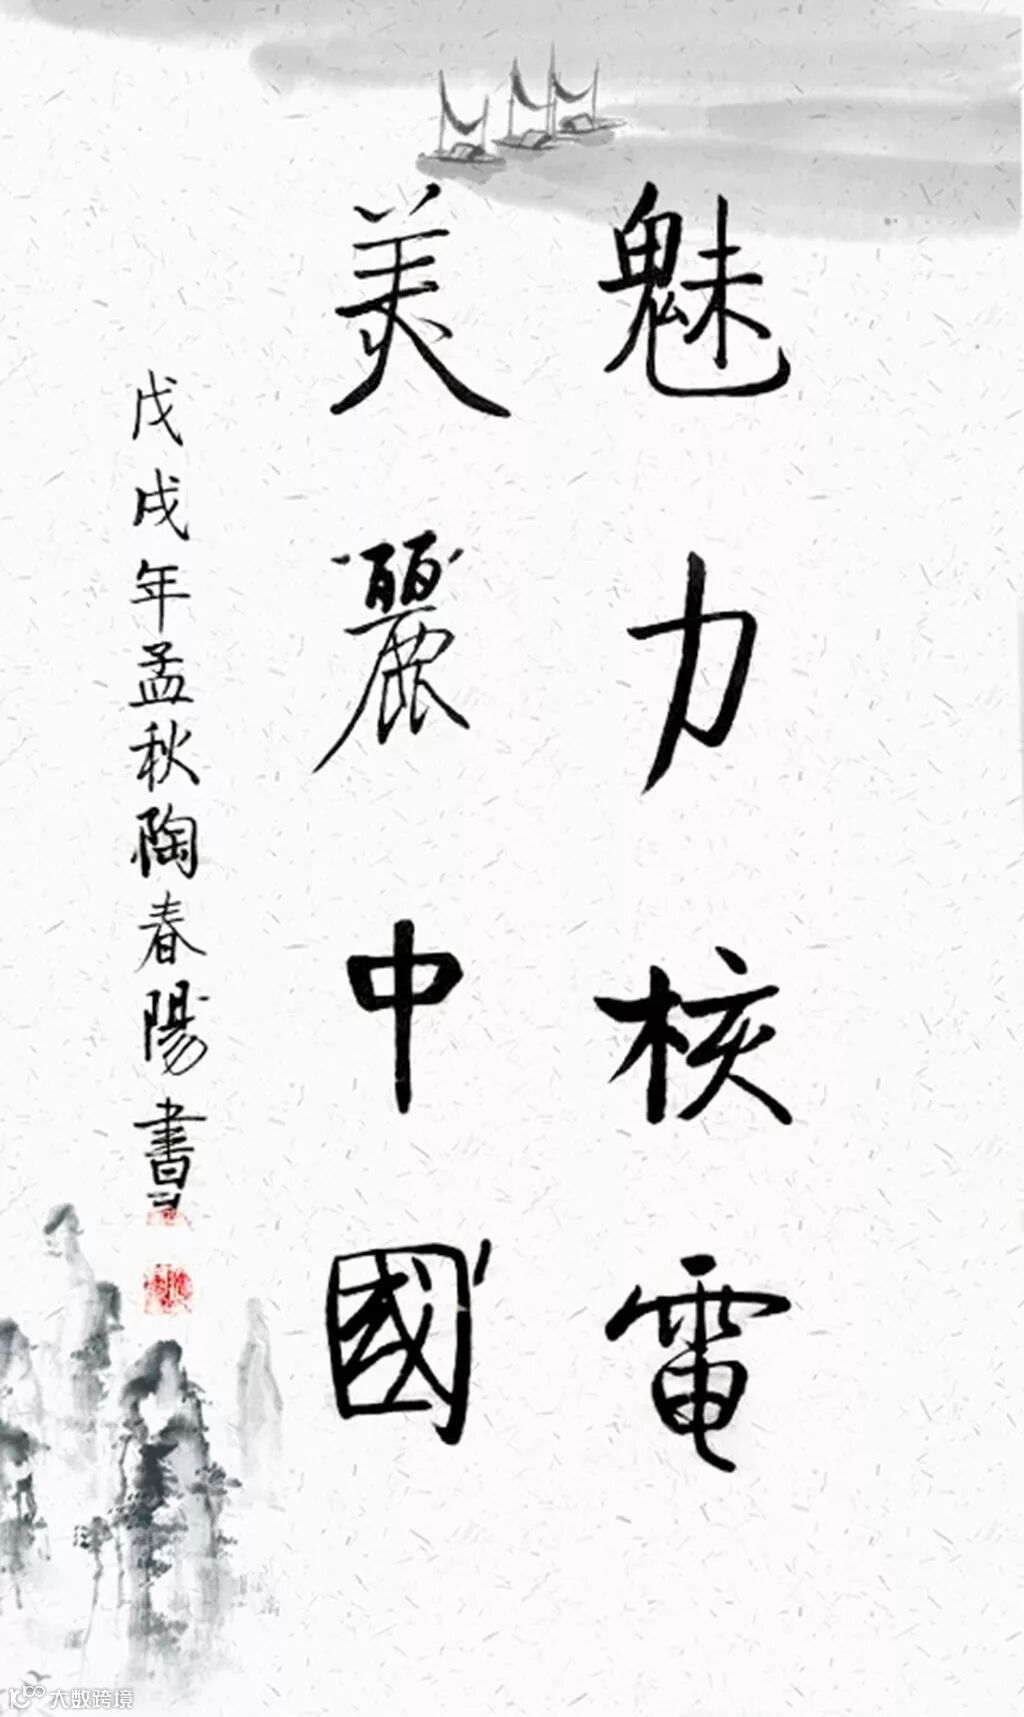 魅力核電
美麗中國
戊戌年孟秋陶春陽書
大数跨境